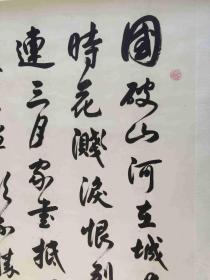 國破山河在城
時花濺淚恨別
連三月家書抵
不勝